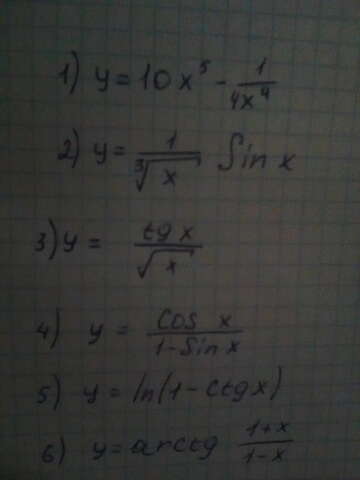 1) y = 10x⁵ - 1/4x⁴
2) y = 1/∛x Sin x
3) y = tg x/√x
4) y = Cos x/1-Sin x
5) y = ln(1-ctgx)
6) y = arctg 1+x/1-x